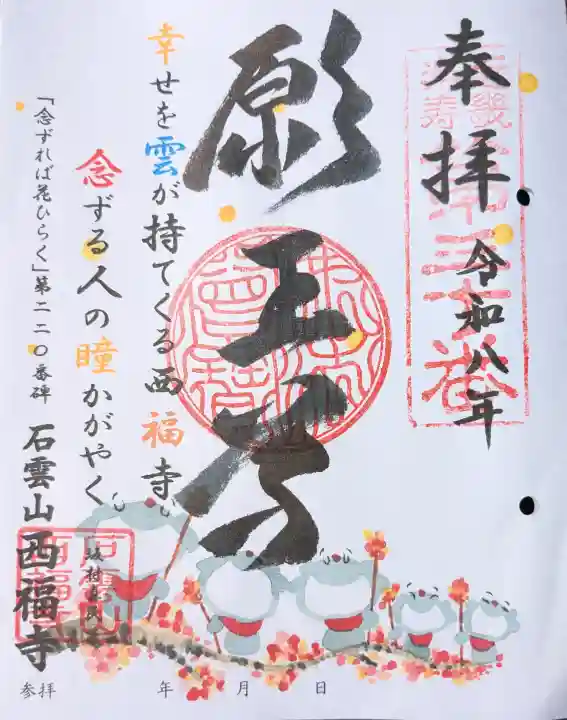 奉拝
令和八年
願王尊
幸せを雲が持てくる西福寺
念ずる人の瞳かがやく
「念ずれば花ひらく」第二二〇番碑
坂村真民
石雲山西福寺
参拝　年　月　日